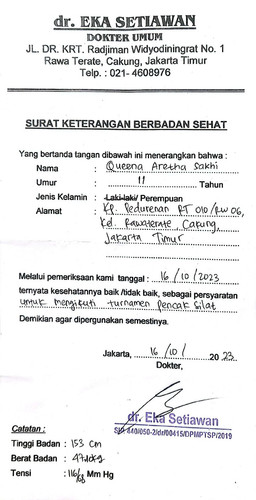 dr. EKA SETIAWAN
DOKTER UMUM
JL. DR. KRT. Radjiman Widyodiningrat No. 1
Rawa Terate, Cakung, Jakarta Timur
Telp. : 021- 4608976
SURAT KETERANGAN BERBADAN SEHAT
Yang bertanda tangan dibawah ini menerangkan bahwa :
Nama : Queena Aretha Sakhi
Umur : 11 Tahun
Jenis Kelamin : Laki-laki/ Perempuan
Alamat : Kp. Pedurenan RT 010/RW 06,
Kel. Rawaterate, Cakung,
Jakarta Timur
Melalui pemeriksaan kami tanggal : 16/10/2023
ternyata kesehatannya baik /tidak baik, sebagai persyaratan
untuk mengikuti turnamen pencak silat
Demikian agar dipergunakan semestinya.
Jakarta, 16/10/ 2023
Dokter,
dr. Eka Setiawan
Catatan :
Tinggi Badan : 153 cm
Berat Badan : 47,1kg
Tensi : 116/68 Mm Hg